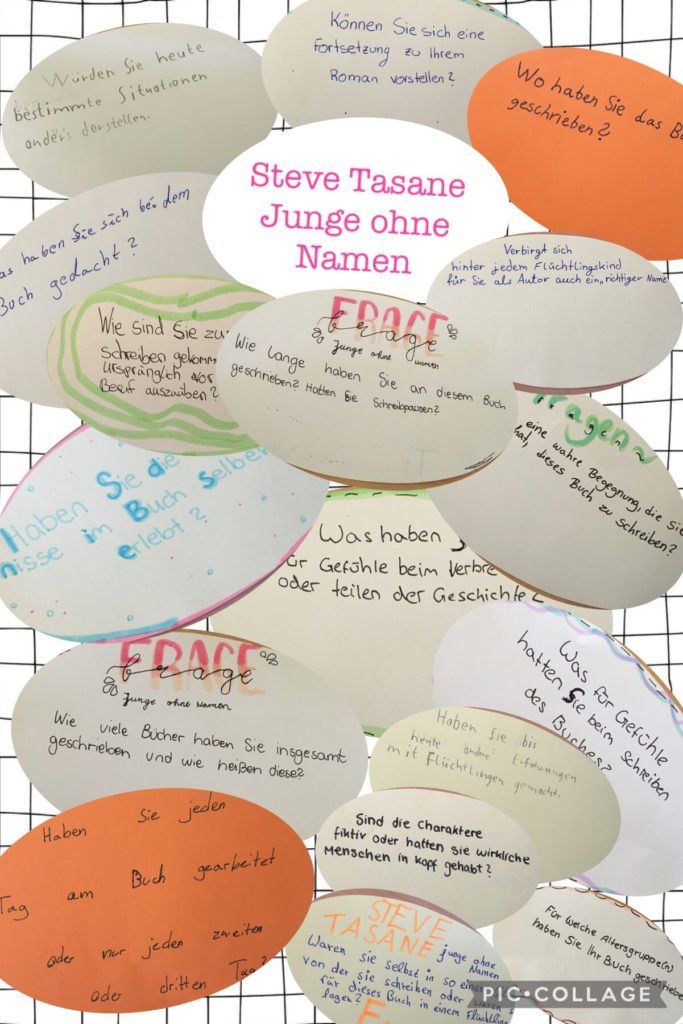 Würden Sie heute
bestimmte Situationen
anders darstellen.
Können Sie sich eine
Fortsetzung zu Ihrem
Roman vorstellen?
Wo haben Sie das
geschrieben?
Steve Tasane
Junge ohne
Namen
haben Sie sich bei dem
Buch gedacht?
Verbirgt sich
hinter jedem Flüchtlingskind
für Sie als Autor auch ein „richtiger Name"
Wie sind Sie
Schreiben
ursprünglich
Beruf auszuüben?
FRAGE
Frage
Junge ohne Namen
Wie lange haben Sie an diesem Buch
geschrieben? Hatten Sie Schreibpausen?
Fragen~
eine wahre Begegnung, die sie
hat, dieses Buch
zu schreiben?
Haben Sie die
nisse im Buch selber
erlebt?
Was haben
für Gefühle beim
oder teilen der Geschichte?
Was für Gefühle
hatten Sie beim Schreiben
des Buches?
FRAGE
Frage
Junge ohne Namen
Wie viele Bücher haben Sie insgesamt
geschrieben und wie heißen diese?
Haben Sie bis
heute andre Erfahrungen
mit Flüchtlingen gemacht.
Haben Sie jeden
Tag am Buch gearbeitet
oder nur jeden zweiten
oder dritten Tag?
Sind die Charaktere
fiktiv oder hatten sie wirkliche
Menschen in kopf gehabt?
STEVE
TASANE
junge ohne
Namen
Waren sie selbst in so
von der sie schreiben oder waren
für dieses Buch in einem
lager?
Für welche Altersgruppe(n)
haben Sie Ihr Buch
PIC•COLLAGE